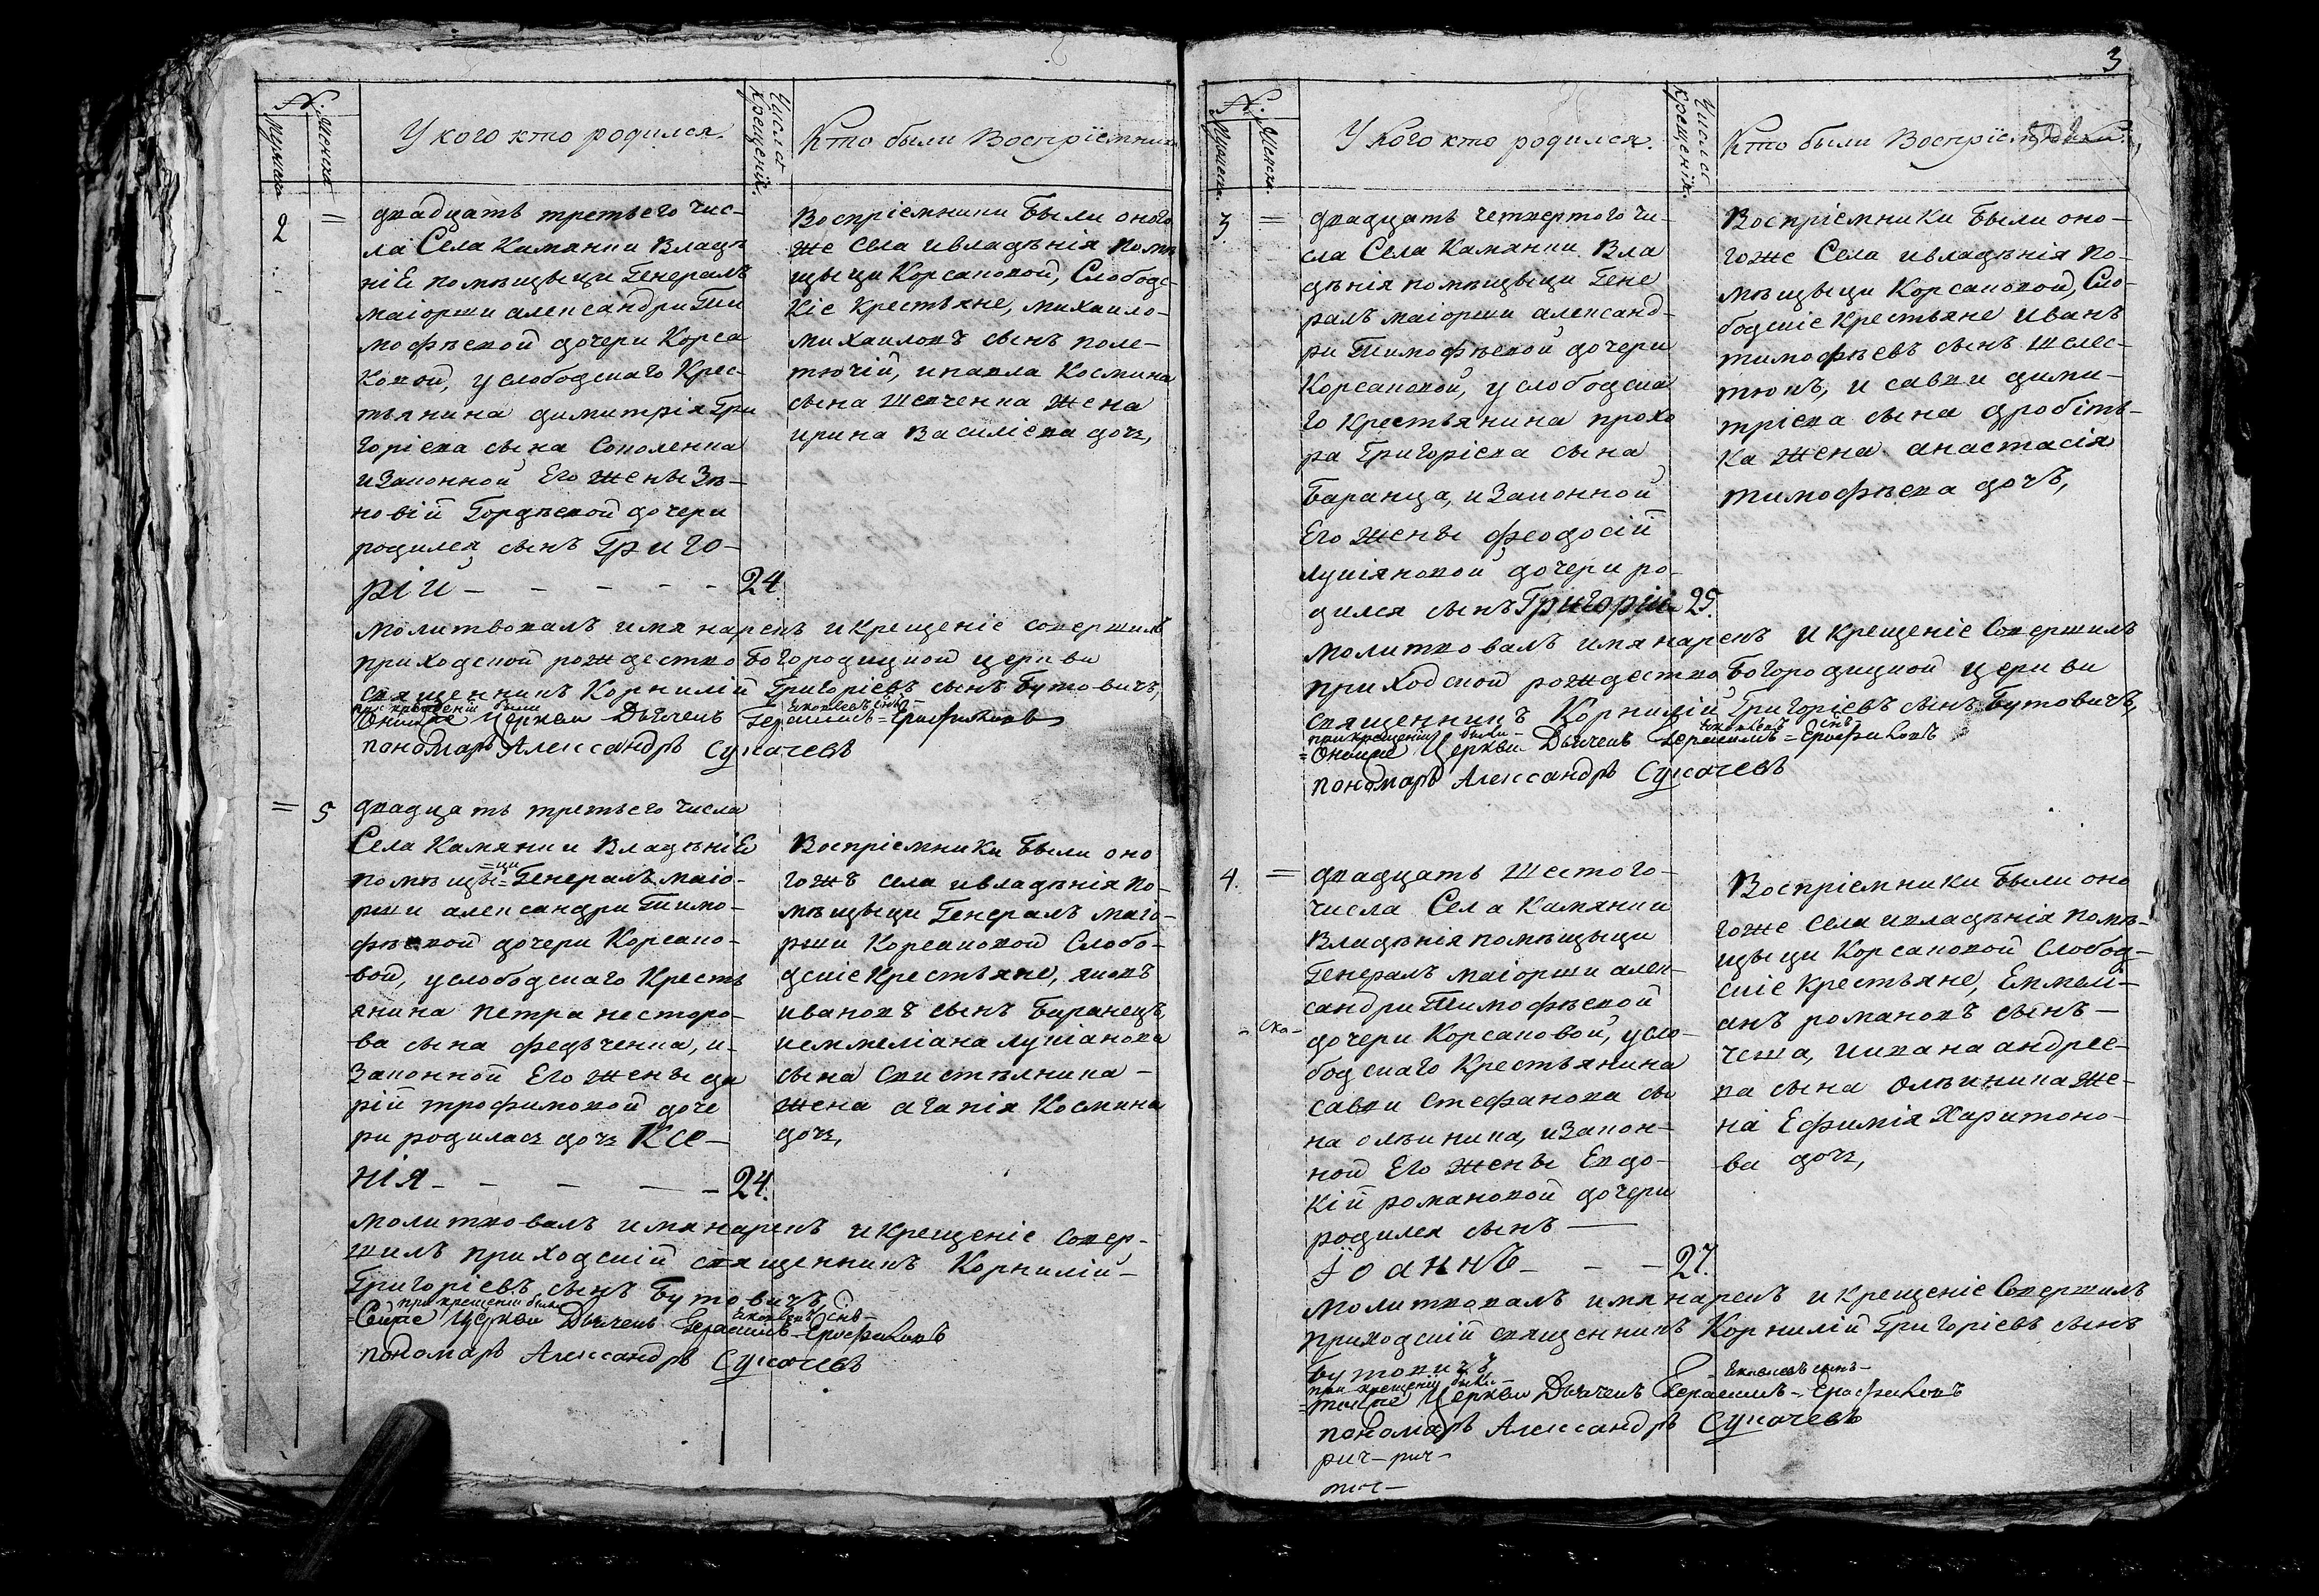 №.
Мужеска
Женска
У кого кто родился.
Число крещенїя.
Кто были Воспрїемники
2
=
двадцать третьего чис-
ла Села Камянки Владѣ
нїЕ помѣщыци Генералъ
маіорши александри Тим
мофѣевой дочери Корса
ковой, услободскаго Крес-
тьянина димитрія Гри
горіева сына Соколенка
изаконной Его жены Зѣ-
новій Гордѣевой дочери
родился сынъ Григо-
рій - - - - - 24.
Воспріемники Были оного
же села ивладѣнія помѣ
щыци Корсаковой, Слободс-
кіе Крестьяне, михаило-
михаиловъ сынъ поле-
тючій, ипавла Космина
сына Шевченка Жена
ирина Василіева дочь,
молитвовалъ имя нарекъ икрещеніе совершилъ
приходской рождество Богородицкой церкви
священникъ Корнилій Григоріевъ сынъ Бутовичъ,
при крещеніи были
Яковлевъ сынъ
Оныяже Церкви Дьячекъ Герасимъ = Ерофѣиовъ
пономарь Александръ Сукачевъ
=
5
двадцать третьего числа
Села Камянки ВладѣніЕ
=ци
помѣщы= Генералъ маіо-
рши александри Тимо-
фѣевой дочери Корсако-
вой, услободскаго Кресть
янина петра несторо-
ва сына федьченка, и-
Законной Его жены да
рій трофимовой доче
ри родилась дочь Ксе-
нія - - - - - 24.
Воспріемники Были оно
гожъ села ивладѣнія по-
мѣщыци Генералъ маіо-
рши Корсаковой Слобо-
дскіе Крестьяне, яковъ
ивановъ сынъ Баранецъ,
иеммеліана лукіанова
сына Свистѣлника-
жена агапія Космина
дочь,
молитвовалъ имянарекъ икрещеніе совер-
шилъ приходскій священникъ Корнилій-
Григоріевъ сынъ Бутовичъ,
при крещеніи были
Яковлевъ снъ-
Сеяже Церкви Дьячекъ Герасимъ-Ерофѣиовъ
пономарь Александръ Сукачевъ
3
№.
Мужеска
Женска.
У кого кто родился.
Число крещенїя.
Кто были Воспрїемники.
3.
=
двадцать четвертого чи-
сла Села Камянки Вла
дѣнія помѣщыци Гене
ралъ маіорши александ-
ри Тимофѣевой дочери
Корсаковой, услободска
го Крестьянина прохо
ра Григоріева сына
Баранца, изаконной
Его жены феодосій
лукіяновой дочери ро-
дился сынъ Григорій 25.
Воспріемники были оно-
гоже Села ивладѣнія по-
мѣщыци Корсаковой, Сло-
бодскіе Крестьяне иванъ
тимофѣевъ сынъ шелес-
тюкъ, и савки дими-
тріева сына дробіть-
ка жена анастасія
тимофѣева дочъ,
молитвовалъ имянарекъ икрещеніе Совершилъ
приходской рождество Богородицкой церкви
священникъ Корнилій Григоріевъ сынъ Бутовичъ,
при крещеніи были-
Яковлевъ снъ-
=Оныяже Церкви Дьячекъ Герасимъ = Ерофѣиовъ
пономарь Александръ Сукачевъ
4.
=
двадцать Шестого-
числа Села Камянки
Владѣнія помѣщыци
Генералъ маіорши алек-
сандри Тимофѣевой
дочери Корсаковой, усло-
бодскаго Крестьянина
савки Стефанова сы
на олѣиника, изакон-
ной Его жены Евдо-
кій романовой дочери
родился сынъ —
Іоаннъ - - - 27.
Воспріемники были оно
гоже села ивладѣнія помѣ-
щыци Корсаковой Слобод-
скіе крестьяне, Еммелі-
анъ романовъ сынъ-
чежа, иивана андрее-
ва сына олѣиникаже-
на Ефимія Харитоно-
ва дочь,
молитвовалъ имянарекъ икрещеніе Совершилъ
приходскій священникъ Корнилій Григоріевъ сынъ
Бутовичъ
при крещеніи были-
Яковлевъ сынъ-
=тояже Церкви Дьячекъ Герасимъ-Ерофѣиовъ
пономарь Александръ Сукачевъ
рич-рич-